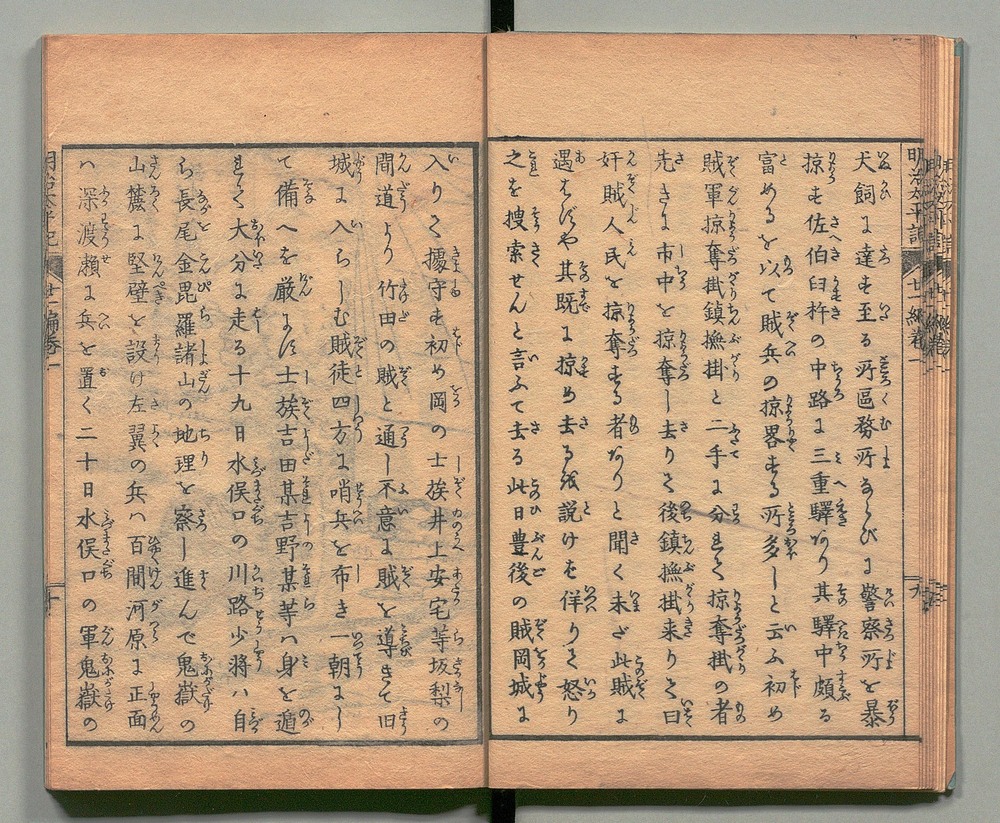 明治太平記 廿一編卷一 九
犬飼に達も至る所區務所ならびに警察所を暴
掠も佐伯臼杵の中路に三重驛あり其驛中頗る
富めるを以て賊兵の掠畧する所多しと云ふ初め
賊軍掠奪掛鎮撫掛と二手に分れて掠奪掛の者
先きに市中を掠奪し去りて後鎮撫掛来りて曰
奸賊人民を掠奪する者ありと聞く未ざ此賊に
遇はずや其既に掠め去るを説けを佯りて怒り
之を捜索せんと言ふて去る此日豊後の賊岡城に
入りて據守も初め岡の士族井上安宅等坂梨の
間道より竹田の賊と通し不意に賊を導きて旧
城に入らしむ賊徒四方に哨兵を布き一朝にし
て備へを厳にす士族吉田某吉野某等ハ身を遁
れて大分に走る十九日水俣口の川路少将ハ自
ら長尾金毘羅諸山の地理を察し進んで鬼嶽の
山麓に堅壁を設け左翼の兵ハ百間河原に正面
ハ深渡瀬に兵を置く二十日水俣口の軍鬼嶽の
明治太平記 廿一編卷一